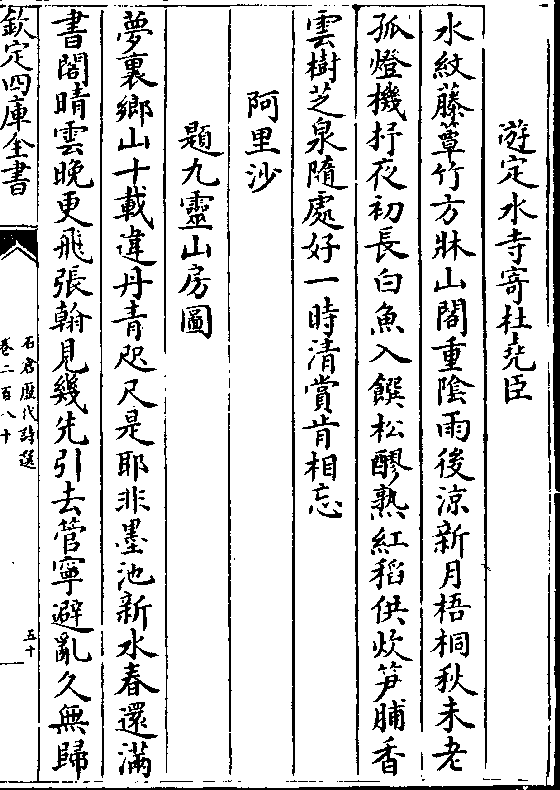 遊定水寺寄杜堯臣
水紋藤簟竹方牀山閣重陰雨後涼新月梧桐秋未老
孤燈機杼夜初長白魚入饌松醪熟紅稻供炊笋脯香
雲樹芝泉隨處好一時清賞肯相忘
阿里沙
題九靈山房圖
夢裏鄉山十載違丹青咫尺是耶非墨池新水春還滿
書閣晴雲晚更飛張翰見幾先引去管寧避亂久無歸
欽定四庫全書
石倉歷代詩選
卷二百八十
五十